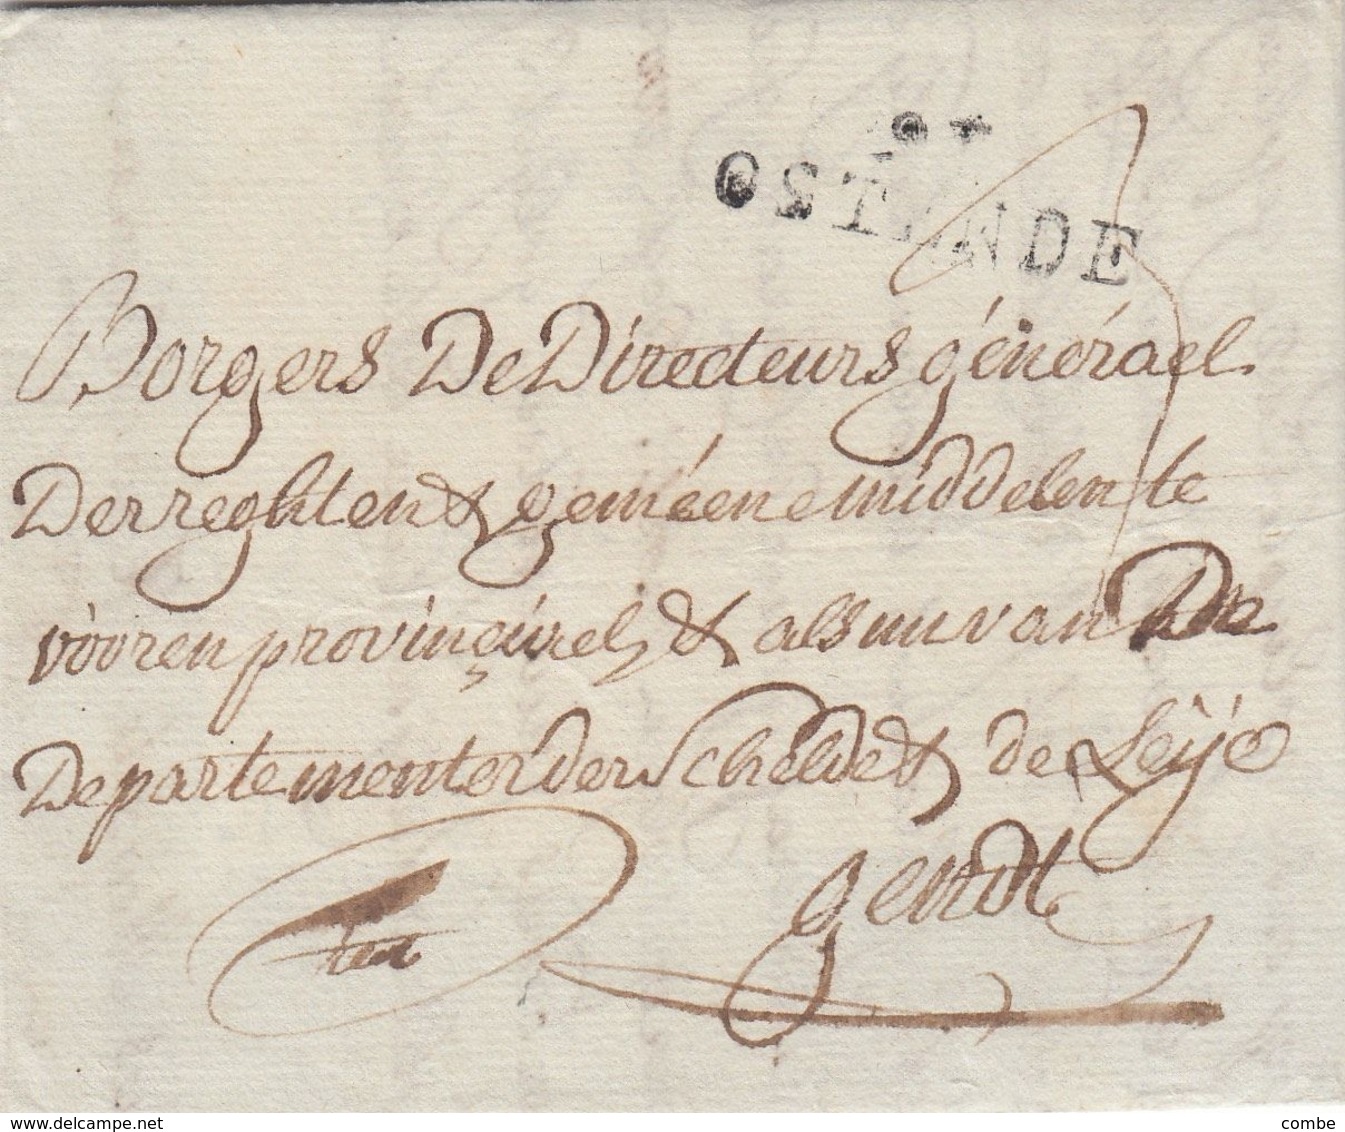 91
OSTENDE
Borgers De Directeurs général
Der reghten & geméene middelen te
vòoren provinçiuel, & als nu van Den
Departementen der Schelde & de Leÿe
ten
Gendt
www.delcampe.net
combe